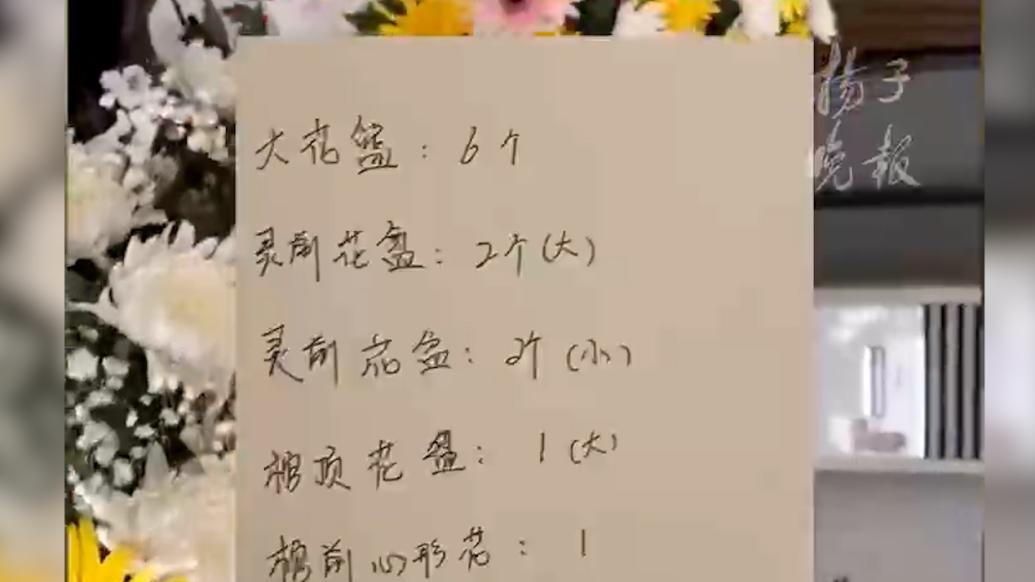 大花篮：6个
灵前花盆：2个（大）
灵前花盆：2个（小）
棺顶花盆：1（大）
棺前心形花：1
扬子
晚报